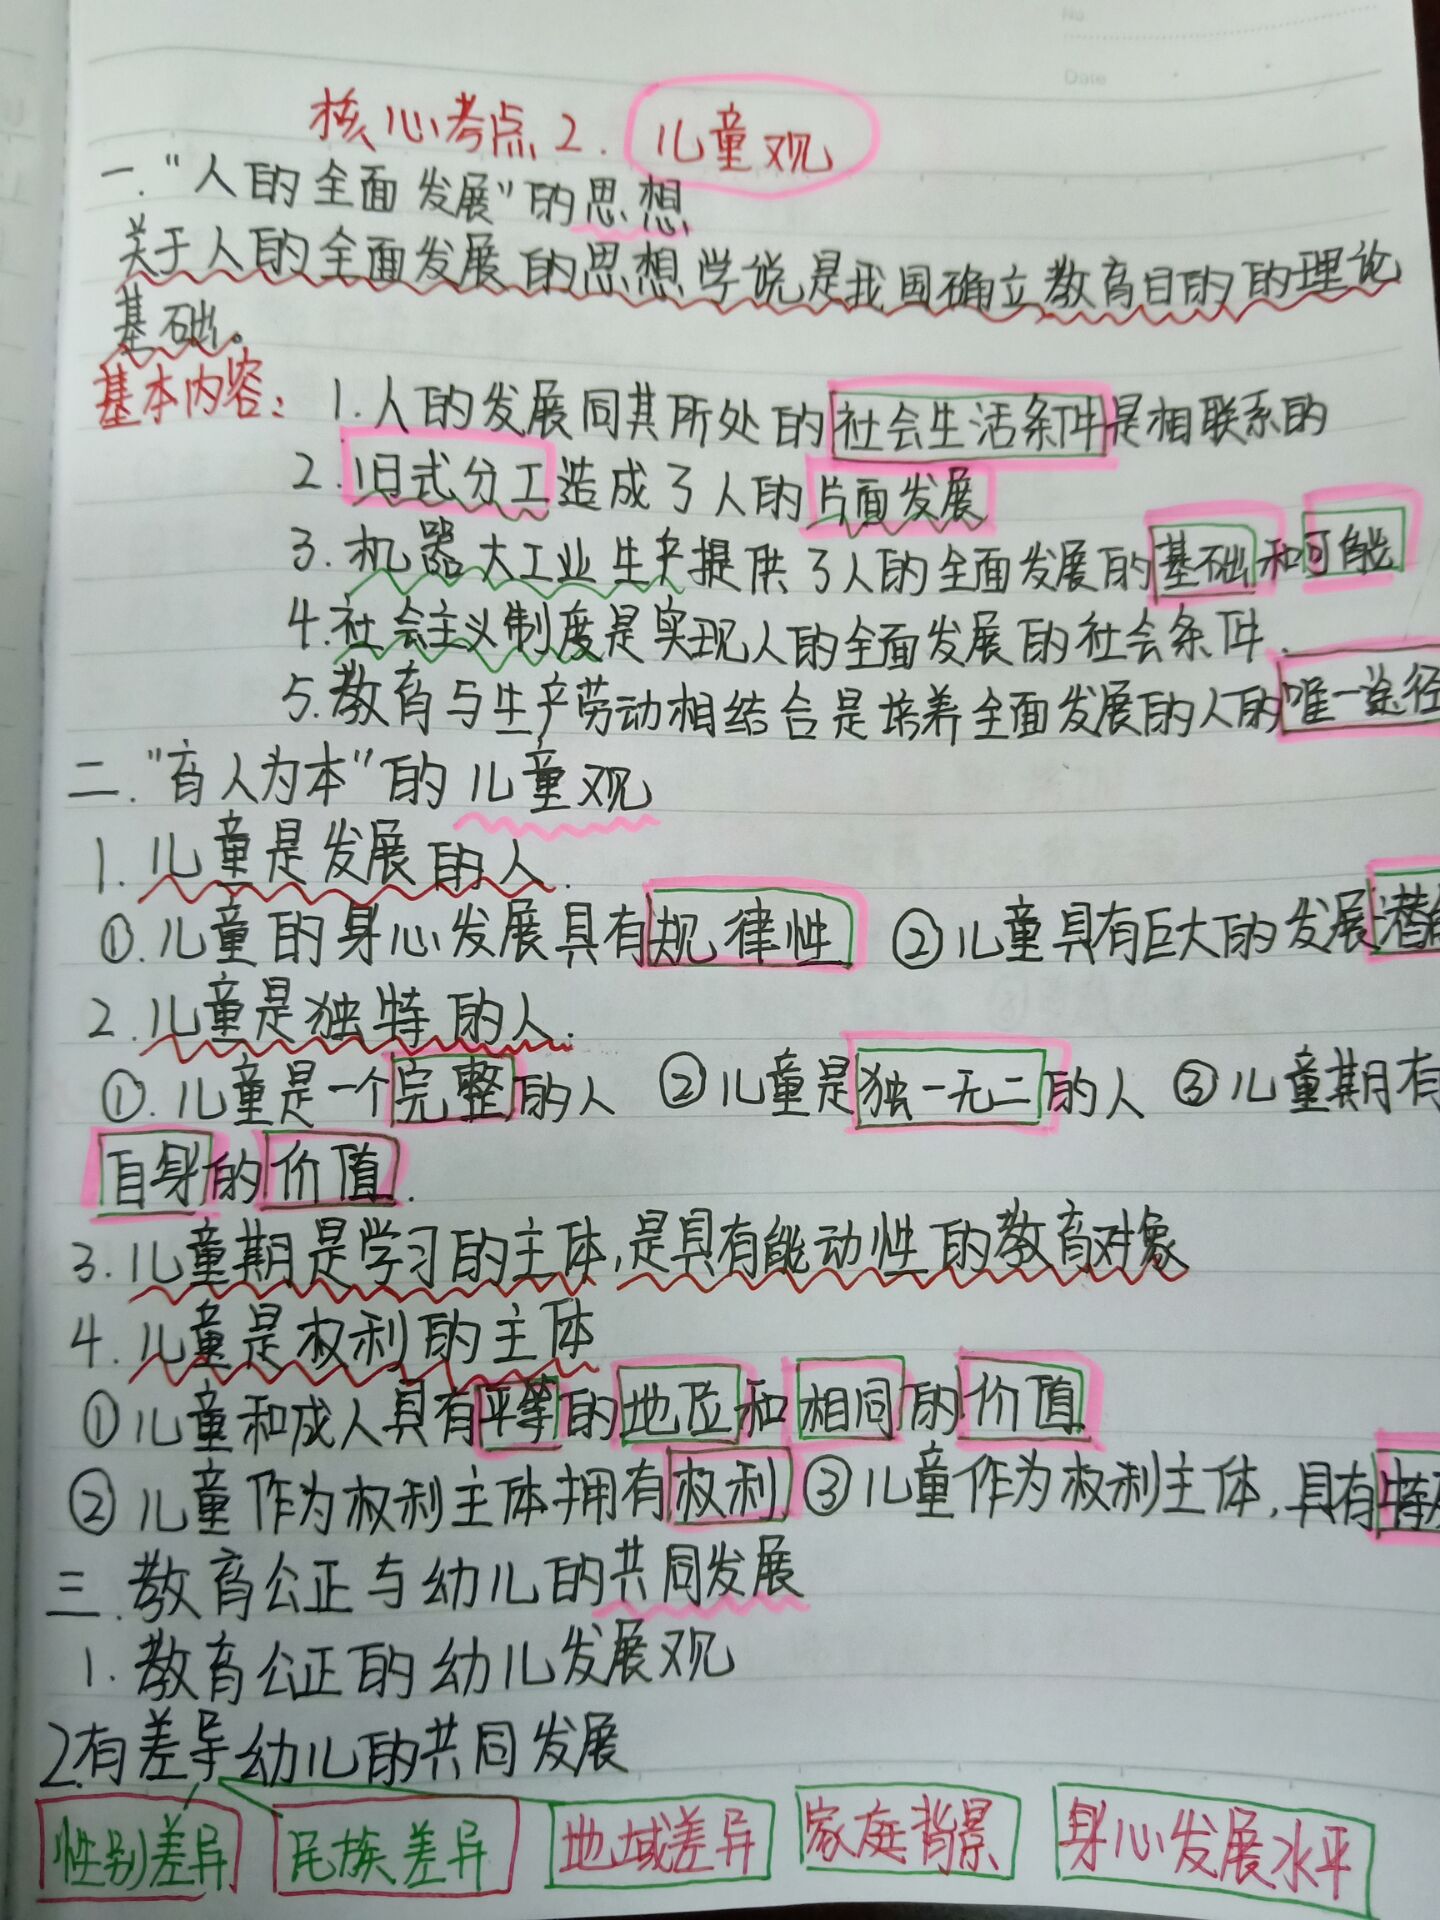 No
Date
核心考点2. 儿童观
一."人的全面发展"的思想
关于人的全面发展的思想学说是我国确立教育目的的理论
基础。
基本内容: 1.人的发展同其所处的社会生活条件是相联系的
2.旧式分工造成了人的片面发展
3.机器大工业生产提供了人的全面发展的基础和可能
4.社会主义制度是实现人的全面发展的社会条件.
5.教育与生产劳动相结合是培养全面发展的人的唯一途径
二."育人为本"的儿童观
1.儿童是发展的人.
①.儿童的身心发展具有规律性 ②儿童具有巨大的发展潜
2.儿童是独特的人.
①.儿童是一个完整的人 ②儿童是独一无二的人 ③儿童期有
自身的价值.
3.儿童期是学习的主体,是具有能动性的教育对象
4.儿童是权利的主体
①儿童和成人具有平等的地位和相同的价值
②儿童作为权利主体拥有权利 ③儿童作为权利主体,具有特
三.教育公正与幼儿的共同发展
1.教育公正的幼儿发展观
2.有差异幼儿的共同发展
性别差异 民族差异 地域差异 家庭背景 身心发展水平